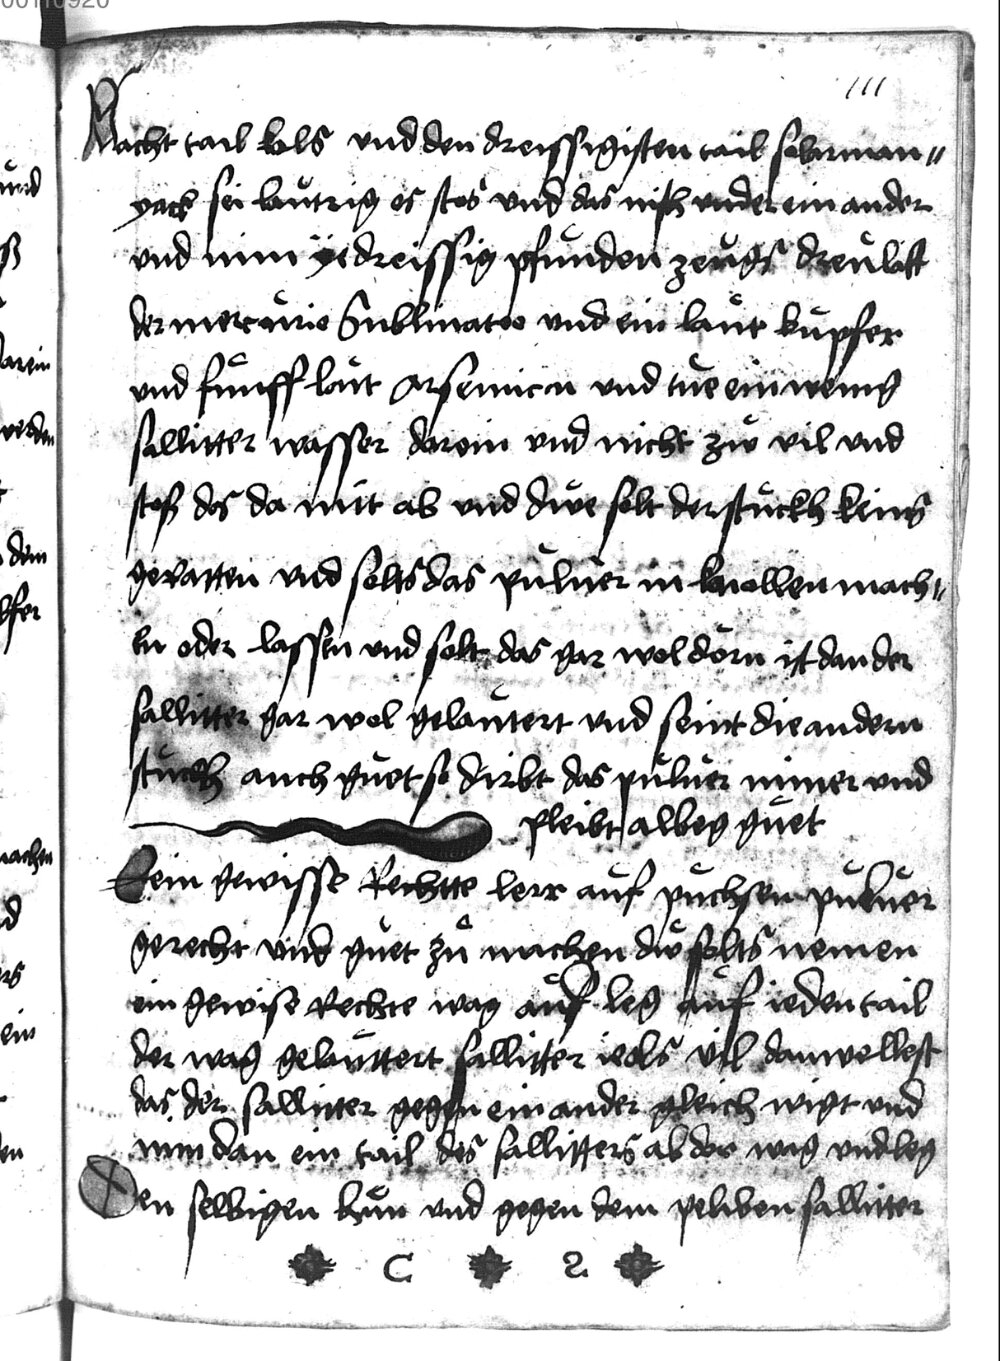 00110920
111
Nacht tail kols vnd den dreissigisten tail salarman=
yack sei lautrig es stos vnd das misch vnder ein ander
vnd nim yedreissig pfunden zeugs dreu latt
der mercuirio Sublimatoo vnd ein laut kupfer
vnd funff laut arsenicu vnd tue ein wenig
sallitter wasser darein vnd nicht zw vil vnd
stoß das da mit ab vnd dwe solt der stuckh keins
geratten vnd solts das puluer in knollen mach=
en oder lassen vnd solt das gar wol dorn ist dan der
sallitter gar wol gelautert vnd seint die andern
stuckh auch guet so dirbt das puluer nimer vnd
pleibt albeg guet
Ein gewisse Rechtte lerr auf puchsen puluer
gerecht vnd guet zu machen dw solts nemen
ein gewise Rechte wag auf leg auf ieden tail
der wag gelauttert sallitter ieols vil dan wellest
das der sallitter gegen ein ander gleich wigt vnd
nim dan ein tail des sallitters ab der wag vnd leg
den selbigen hin vnd gegen dem peliben sallitter
C 2